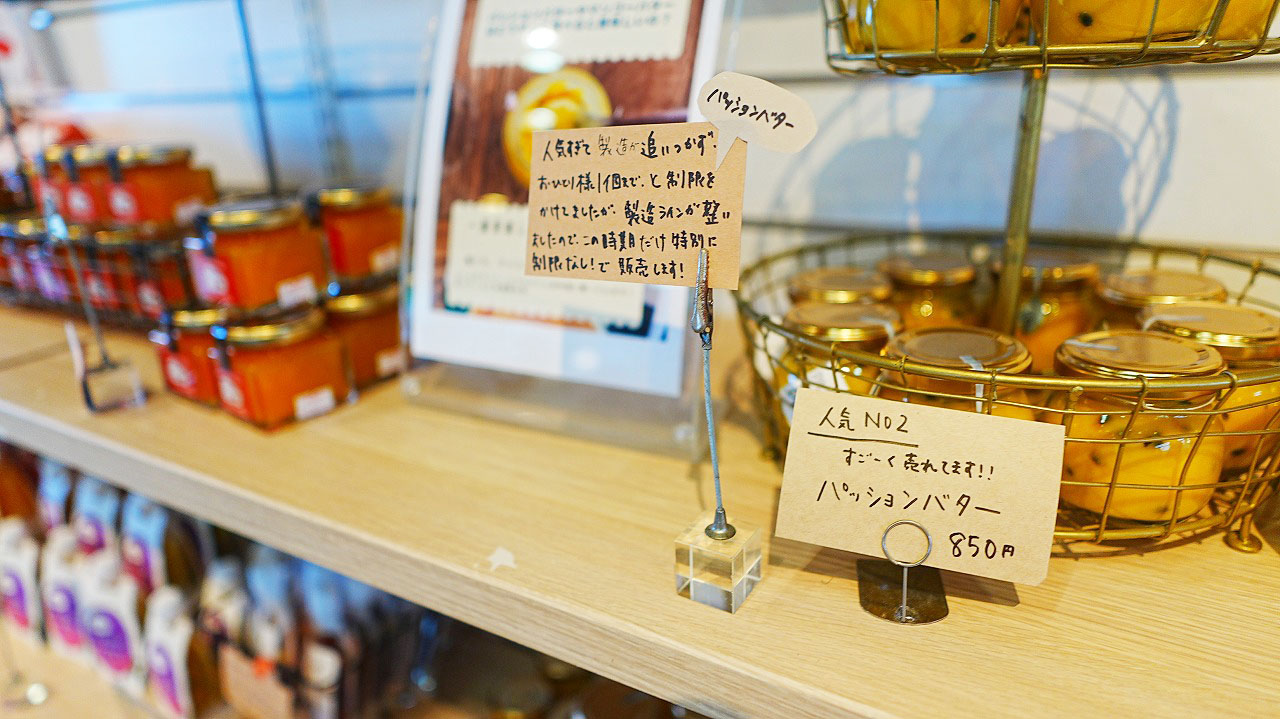 パッションバター
人気すぎて製造が追いつかず、
おひとり様1個まで、と制限を
かけてましたが、製造ラインが整い
ましたので、この時期だけ特別に
制限なし!で販売します!
人気 NO2
すごーく売れてます!!
パッションバター
850円